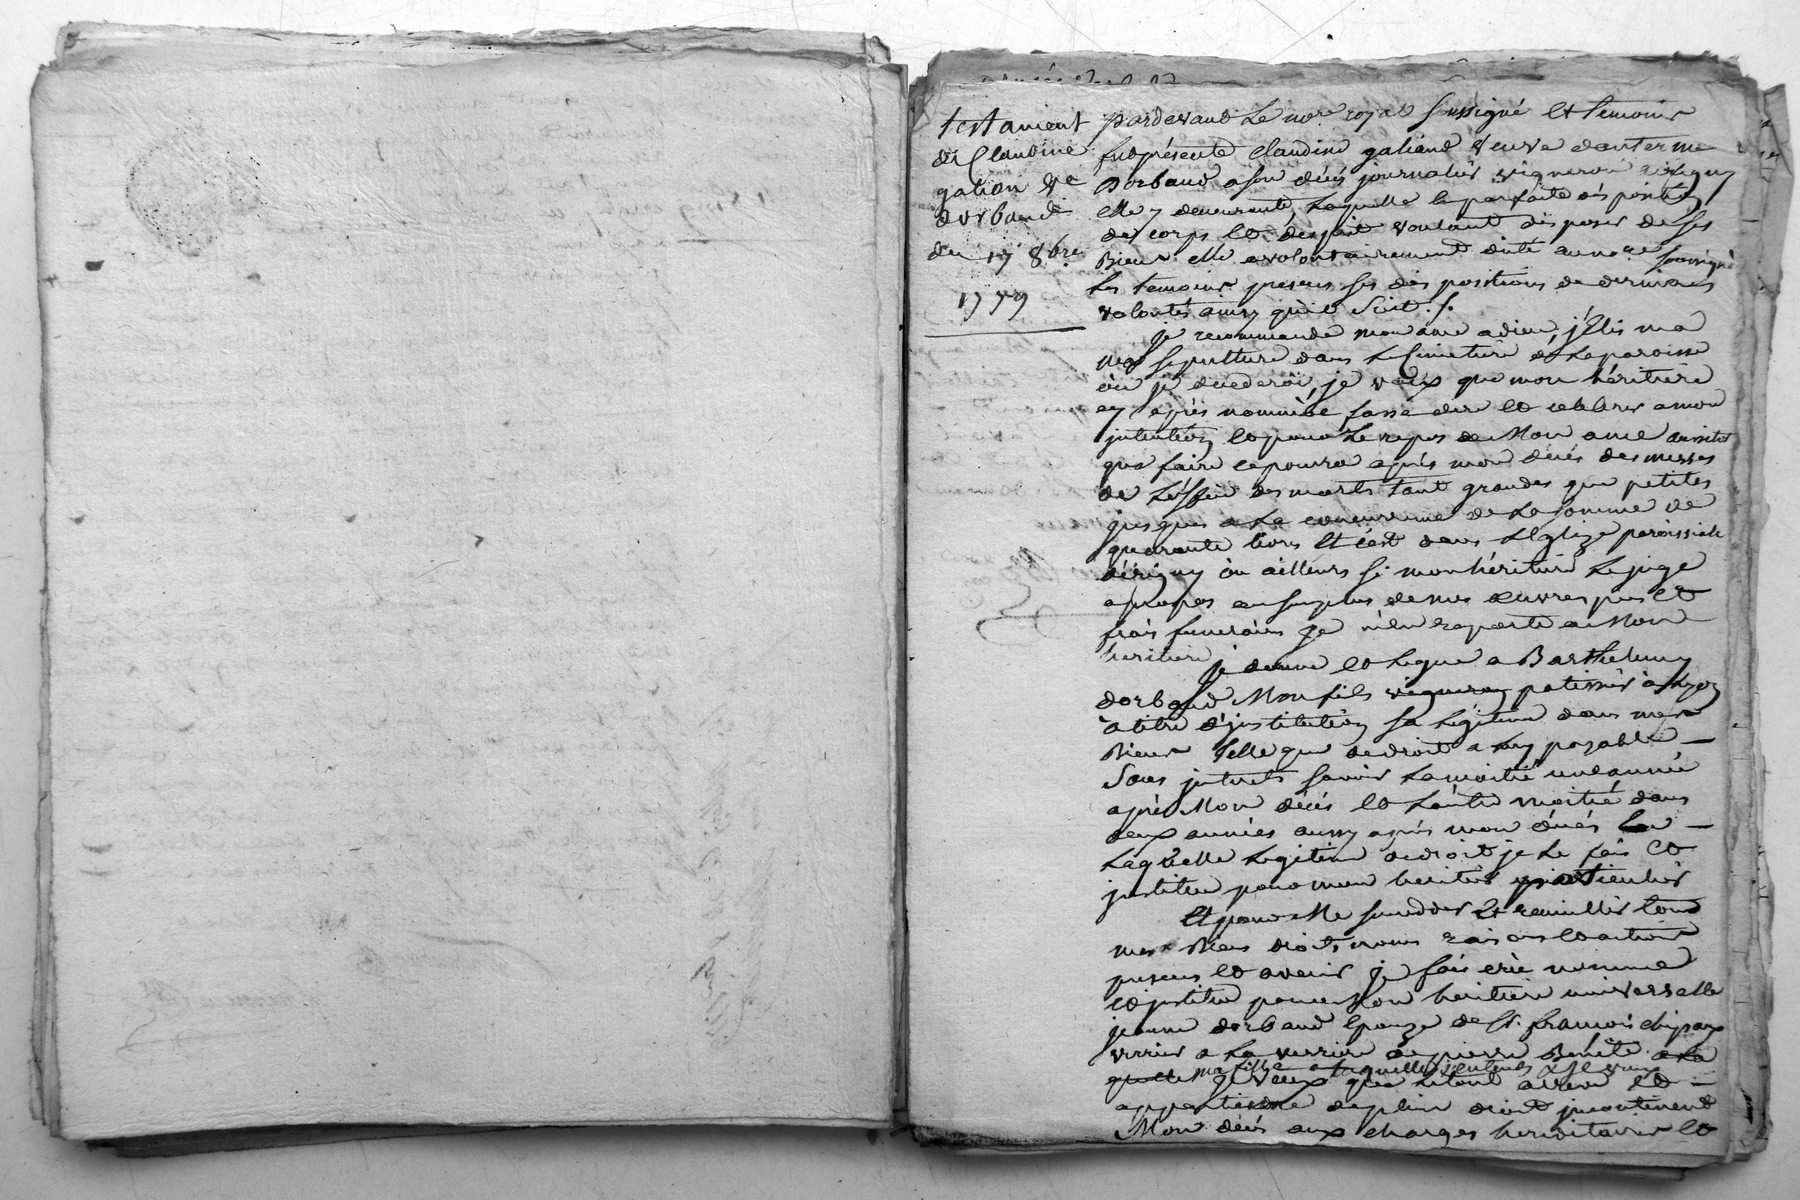 testament
de Claudine
galion ve
dorband
du 17 8bre
1779
pardevant Le nore royal soussigné et temoins
fut présente Claudine galiand veuve d'anterme
Dorband a son décés journalier vigneron a irigny
elle y demeurante, Laquelle en parfaite dispôsition
de corps et desprit voulant disposer de ses
Biens elle a volontairement dicté au nore soussigné
Les temoins presens ses dispositions de dernieres
volontés ainsy qu'il suit ./.
je recommande mon ame a dieu, j'Elis ma
sepulture dans Le simetiere de La paroisse
òu je decederai, je veux que mon héritiere
cy après nommée fasse dire et celebrer a mon
jntention et pour Le repos de Mon ame aussitot
que faire se pourra après mon décés des messes
de L'office des morts tant grandes que petites
jusques a La concurrence de La somme de
quarante livres Et c'est dans L'Eglize paroissialle
dérigny òu ailleurs si mon héritiere Le juge
apropos au surplus de mes œuvres pies et
frais funeraires je m'en raporte a Mon
heritiere
je donne et Legue a Barthelemy
dorband Mon fils vigneron patissier à Lyon
à titre d'jnstitution sa Légitime dans mes
Biens telle que de droit a Luy payable
Sans jnterets savoir La moitié une année
après Mon décés et L'autre moitié dans
deux années aussy après mon décés
Laquelle Legitime de droit je Le fais et
jnstitue pour mon heritier particulier
Et pour Me succeder Et recueillir tous
mes Biens droits noms raisons et actions
presens et avenir je fais crée nomme
et jnstitue pour Mon heritiere universelle
jeanne dorband Epouze de Sr. francois
verrier a La verriere de pierre Benite a La
quelle ma fille a laquelle j'entends & je veux
je veux que Le tout arrive et
appartienne de plein droit jncontinent
Mon décés aux charges hereditaires et